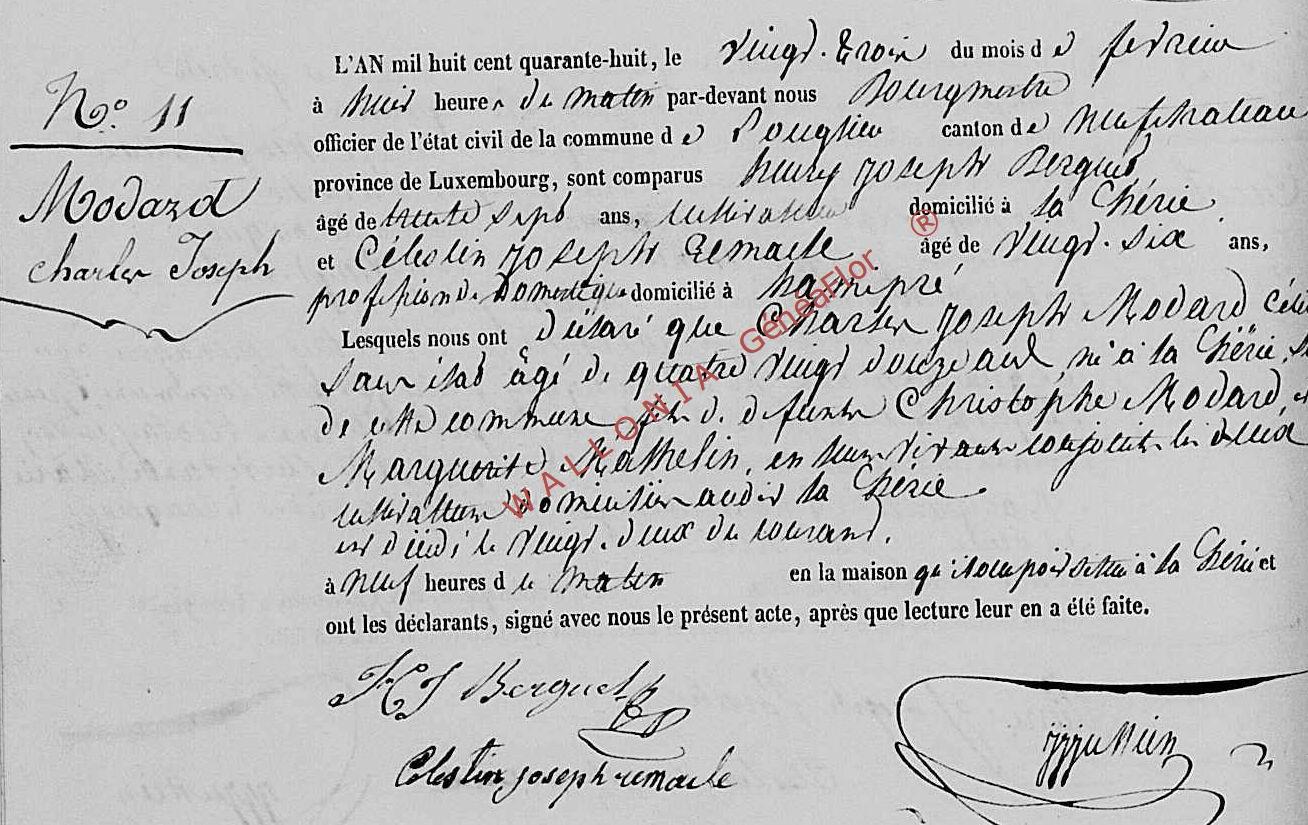 N.° 11
Modard
Charles Joseph
L'AN mil huit cent quarante-huit, le vingt-trois du mois de fevrier
à huit heures du matin par-devant nous Bourgmestre
officier de l'état civil de la commune de canton de Neufchateau
province de Luxembourg, sont comparus henry joseph Berguet
âgé de trente sept ans, cultivateur domicilié à la Chérie
et Célestin joseph Remacle âgé de vingt-six ans,
profession de Domestique domicilié à hamipré
Lesquels nous ont déclaré que Charles joseph Modard
Sans état âgé de quatre vingt douze ans, né à la Chérie,
de cette commune fils de defunts Christophe Modard, et
Marguerite Mathelin, en leur vivant conjoints les deux
cultivateurs domiciliés audit la Chérie.
est décédé le vingt-deux du courant.
à neuf heures du matin en la maison qu'il occupait située à la Chérie et
ont les déclarants, signé avec nous le présent acte, après que lecture leur en a été faite.
H J Berguet
Celestin joseph remacle
WALLONIA GénéaFlor ®